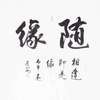 随缘
相逢
即是
缘